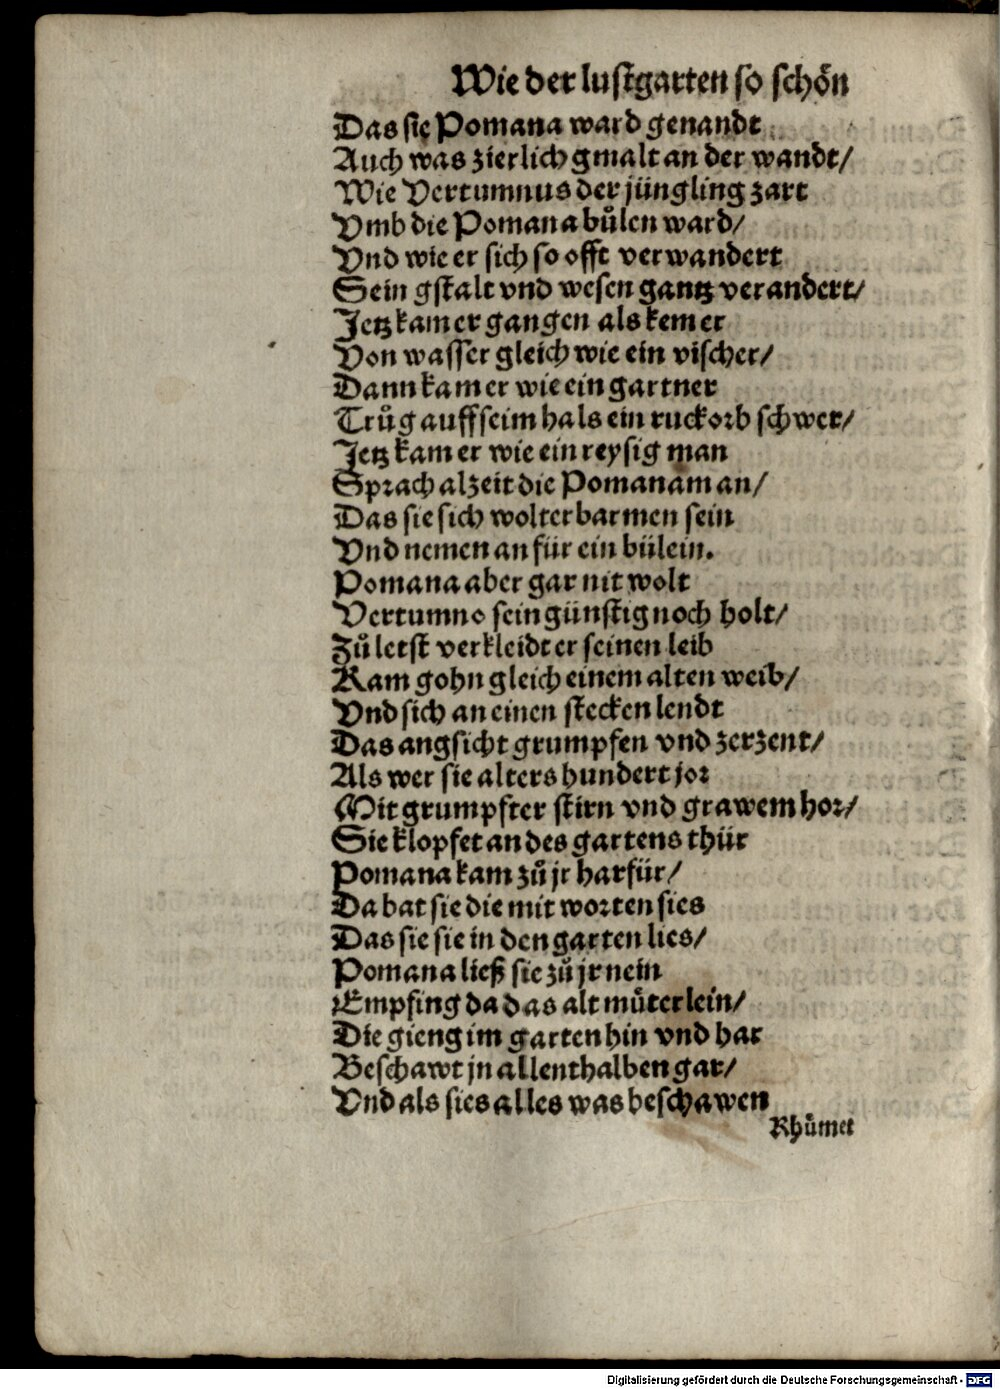 Wie der lustgarten so schön
Das sie Pomana ward genandt
Auch was zierlich gmalt an der wandt/
Wie Vertumnus der jüngling zart
Vmb die Pomana bůlen ward/
Vnd wie er sich so offt verwandert
Sein gstalt vnd wesen gantz verandert/
Jetz kam er gangen als kem er
Von wasser gleich wie ein vischer/
Dann kam er wie ein gartner
Trůg auff seim hals ein ruckorb schwer/
Jetz kam er wie ein reysig man
Sprach alzeit die Pomanam an/
Das sie sich wolt erbarmen sein
Vnd nemen an für ein bülein.
Pomana aber gar nit wolt
Vertumno sein günstig noch holt/
Zů letst verkleidt er seinen leib
Kam gohn gleich einem alten weib/
Vnd sich an einen stecken lendt
Das angsicht grumpfen vnd zerzent/
Als wer sie alters hundert jor
Mit grumpfter stirn vnd grawem hor/
Sie klopfet an des gartens thür
Pomana kam zů jr harfür/
Da bat sie die mit worten sies
Das sie sie in den garten lies/
Pomana ließ sie zů jr nein
Empfing da das alt můterlein/
Die gieng im garten hin vnd har
Beschawt jn allenthalben gar/
Vnd als sies alles was beschawen
Rhůmet
Digitalisierung gefördert durch die Deutsche Forschungsgemeinschaft - DFG